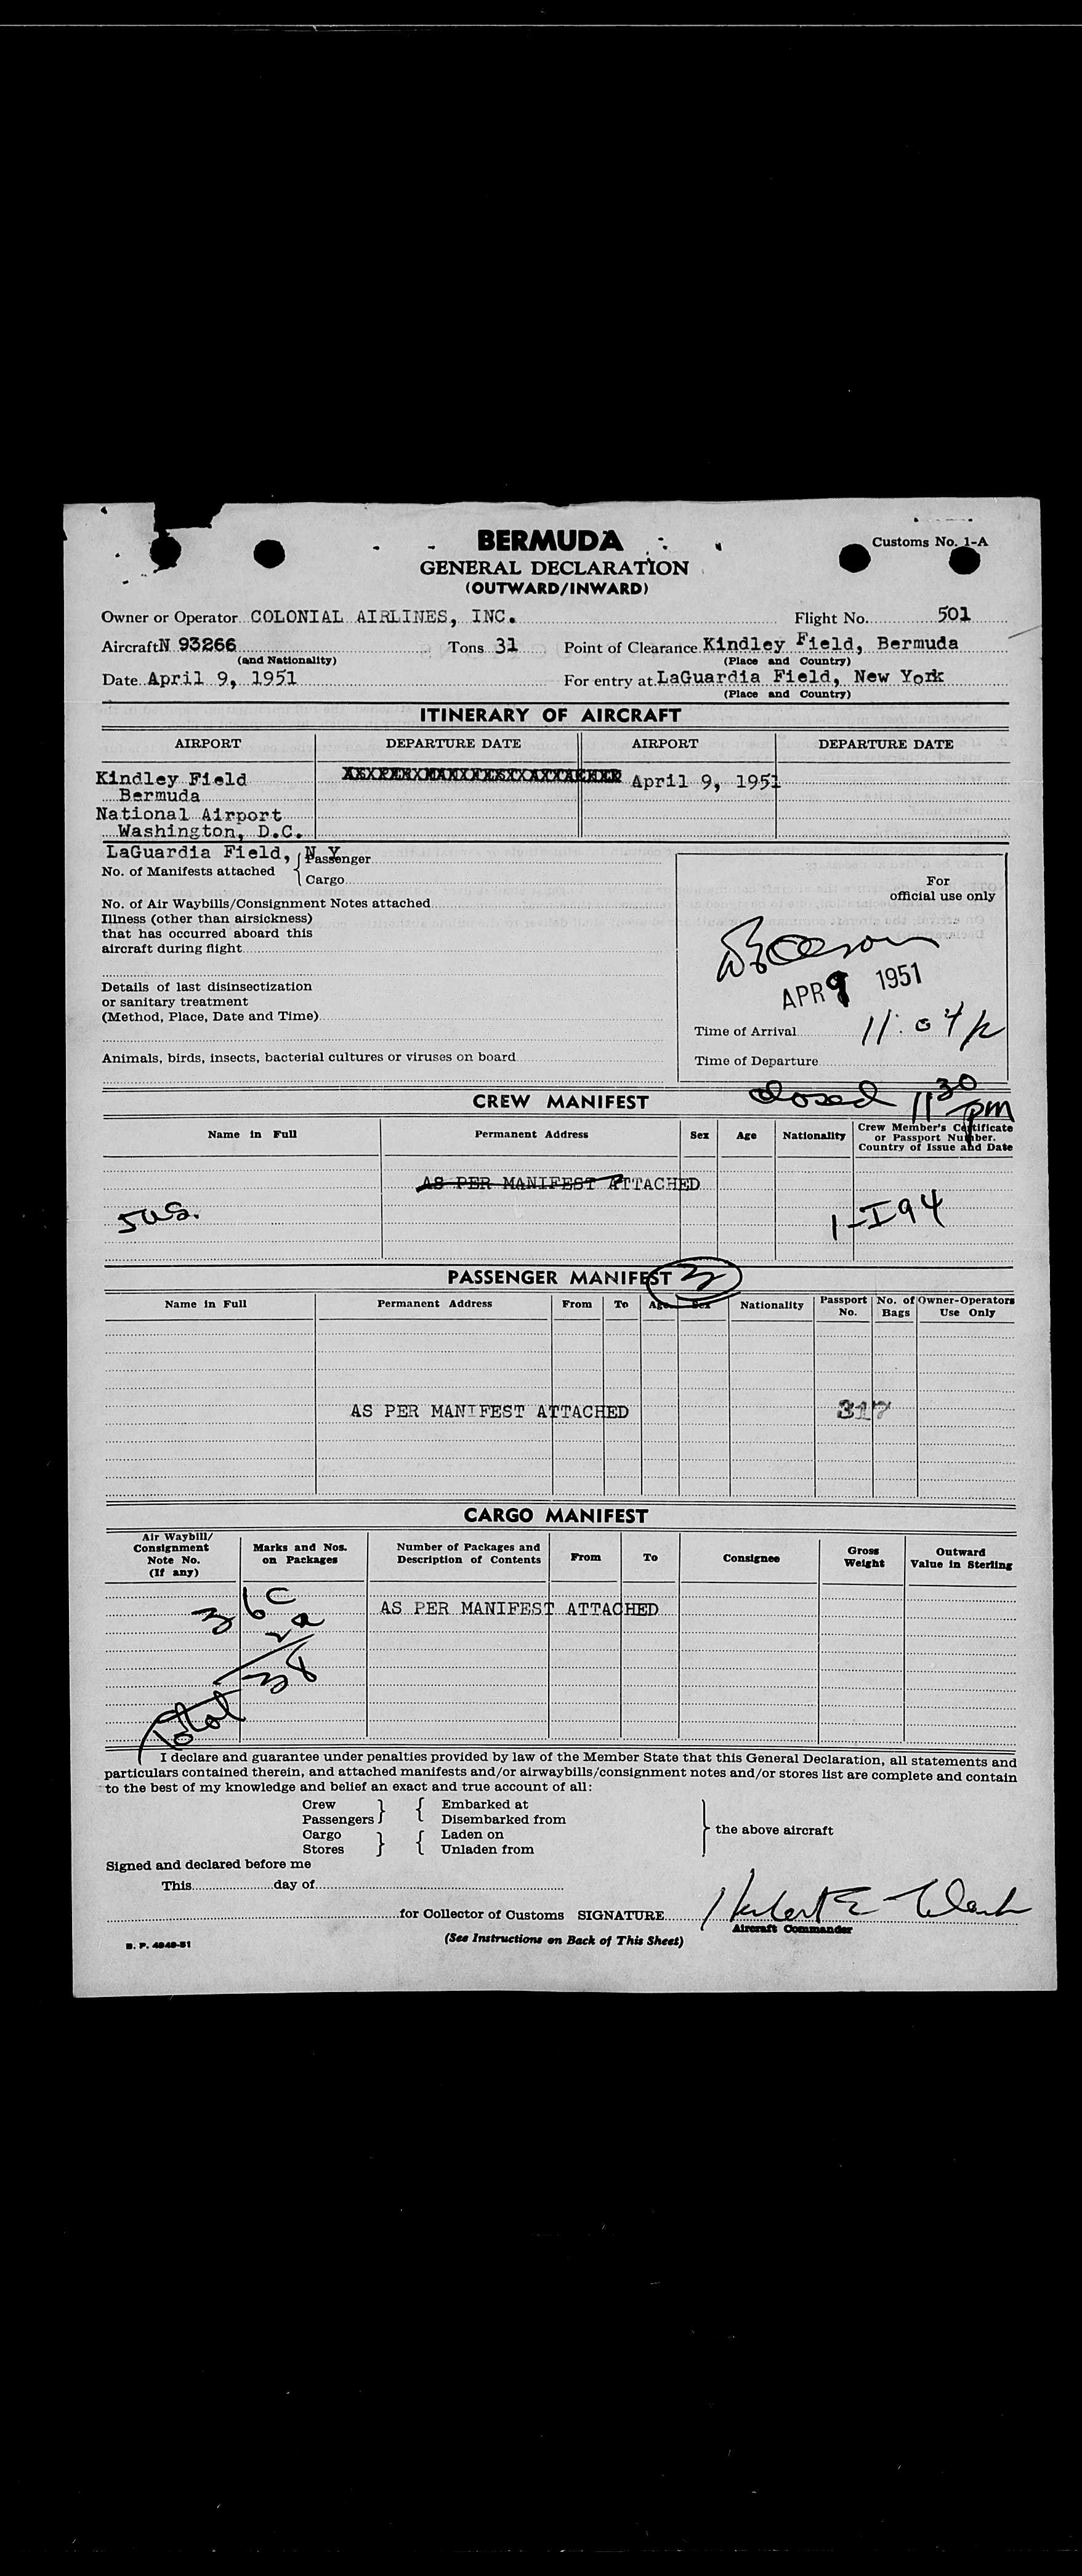 BERMUDA
Customs No. 1-A
GENERAL DECLARATION
(OUTWARD/INWARD)
Owner or Operator COLONIAL AIRLINES, INC. Flight No. 501
Aircraft N 93266 Tons 31 Point of Clearance Kindley Field, Bermuda
(and Nationality) (Place and Country)
Date April 9, 1951 For entry at LaGuardia Field, New York
(Place and Country)
ITINERARY OF AIRCRAFT
AIRPORT DEPARTURE DATE AIRPORT DEPARTURE DATE
Kindley Field April 9, 1951
Bermuda
National Airport
Washington, D.C.
LaGuardia Field, N Y
No. of Manifests attached { Passenger
Cargo
For
official use only
No. of Air Waybills/Consignment Notes attached
Illness (other than airsickness)
that has occurred aboard this
aircraft during flight
APR 9 1951
Details of last disinsectization
or sanitary treatment
(Method, Place, Date and Time)
Time of Arrival 11:04 p
Animals, birds, insects, bacterial cultures or viruses on board
Time of Departure
closed 11 30 pm
CREW MANIFEST
Name in Full Permanent Address Sex Age Nationality Crew Member's Certificate
or Passport Number.
Country of Issue and Date
AS PER MANIFEST ATTACHED
5 us. 1-I94
PASSENGER MANIFEST
Name in Full Permanent Address From To Age Sex Nationality Passport No. No. of Bags Owner-Operators Use Only
AS PER MANIFEST ATTACHED 317
CARGO MANIFEST
Air Waybill/
Consignment
Note No.
(If any)
Marks and Nos.
on Packages
Number of Packages and
Description of Contents
From To Consignee Gross
Weight
Outward
Value in Sterling
36 c
AS PER MANIFEST ATTACHED
2 a
Total 38
I declare and guarantee under penalties provided by law of the Member State that this General Declaration, all statements and
particulars contained therein, and attached manifests and/or airwaybills/consignment notes and/or stores list are complete and contain
to the best of my knowledge and belief an exact and true account of all:
Crew } { Embarked at
Passengers Disembarked from
Cargo } { Laden on
Stores Unladen from
} the above aircraft
Signed and declared before me
This day of
for Collector of Customs SIGNATURE Herbert E
Aircraft Commander
(See Instructions on Back of This Sheet)
B. P. 4949-51